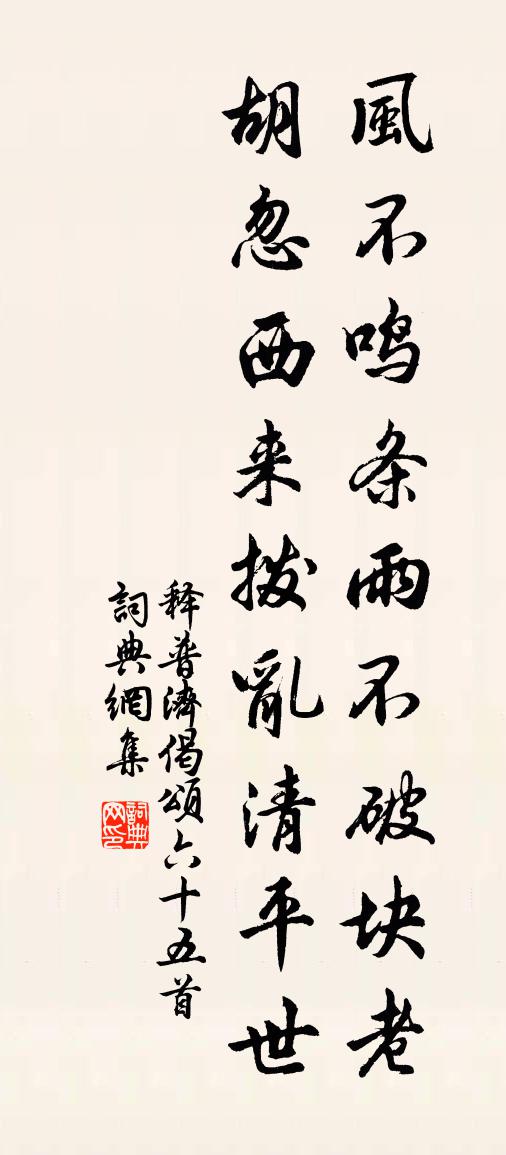 風不鸣条雨不破块老
胡忽西来拨亂清平世
释普濟偈頌六十五首
詞典網集
詞典网印